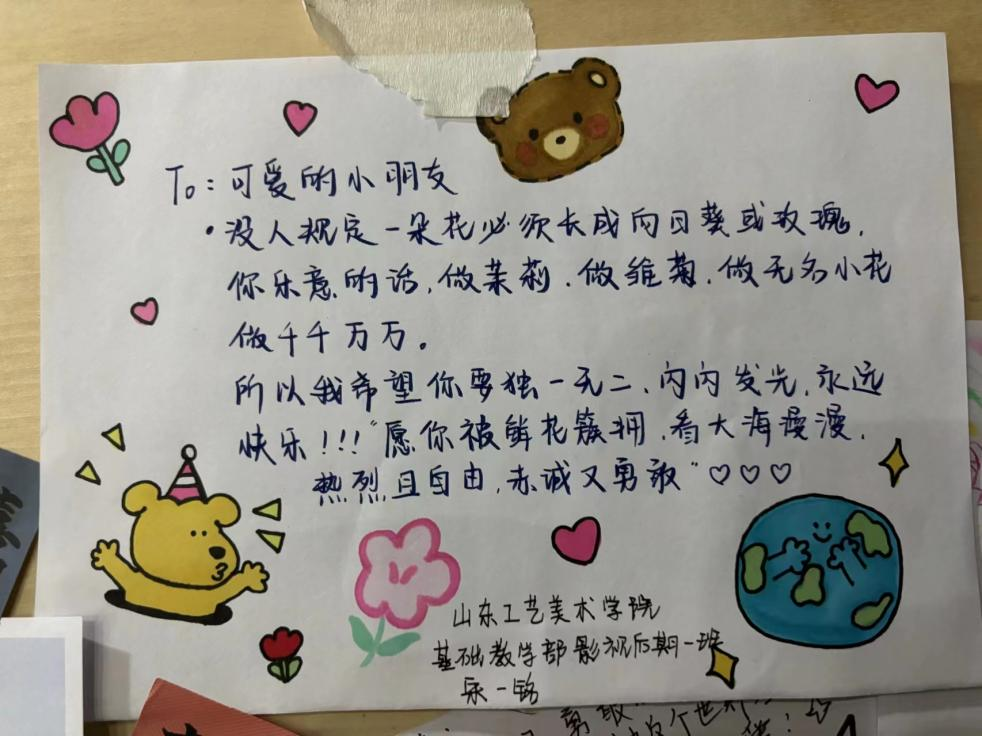 To：可爱的小朋友
·没人规定一朵花必须长成向日葵或玫瑰，
你乐意的话，做茉莉．做雏菊．做无名小花
做千千万万。
所以我希望你要独一无二、闪闪发光，永远
快乐！！！“愿你被鲜花簇拥，看大海漫漫，
热烈且自由，赤诚又勇敢”♡♡♡
山东工艺美术学院
基础教学部影视后期一班
一铭
勇敢
个世界